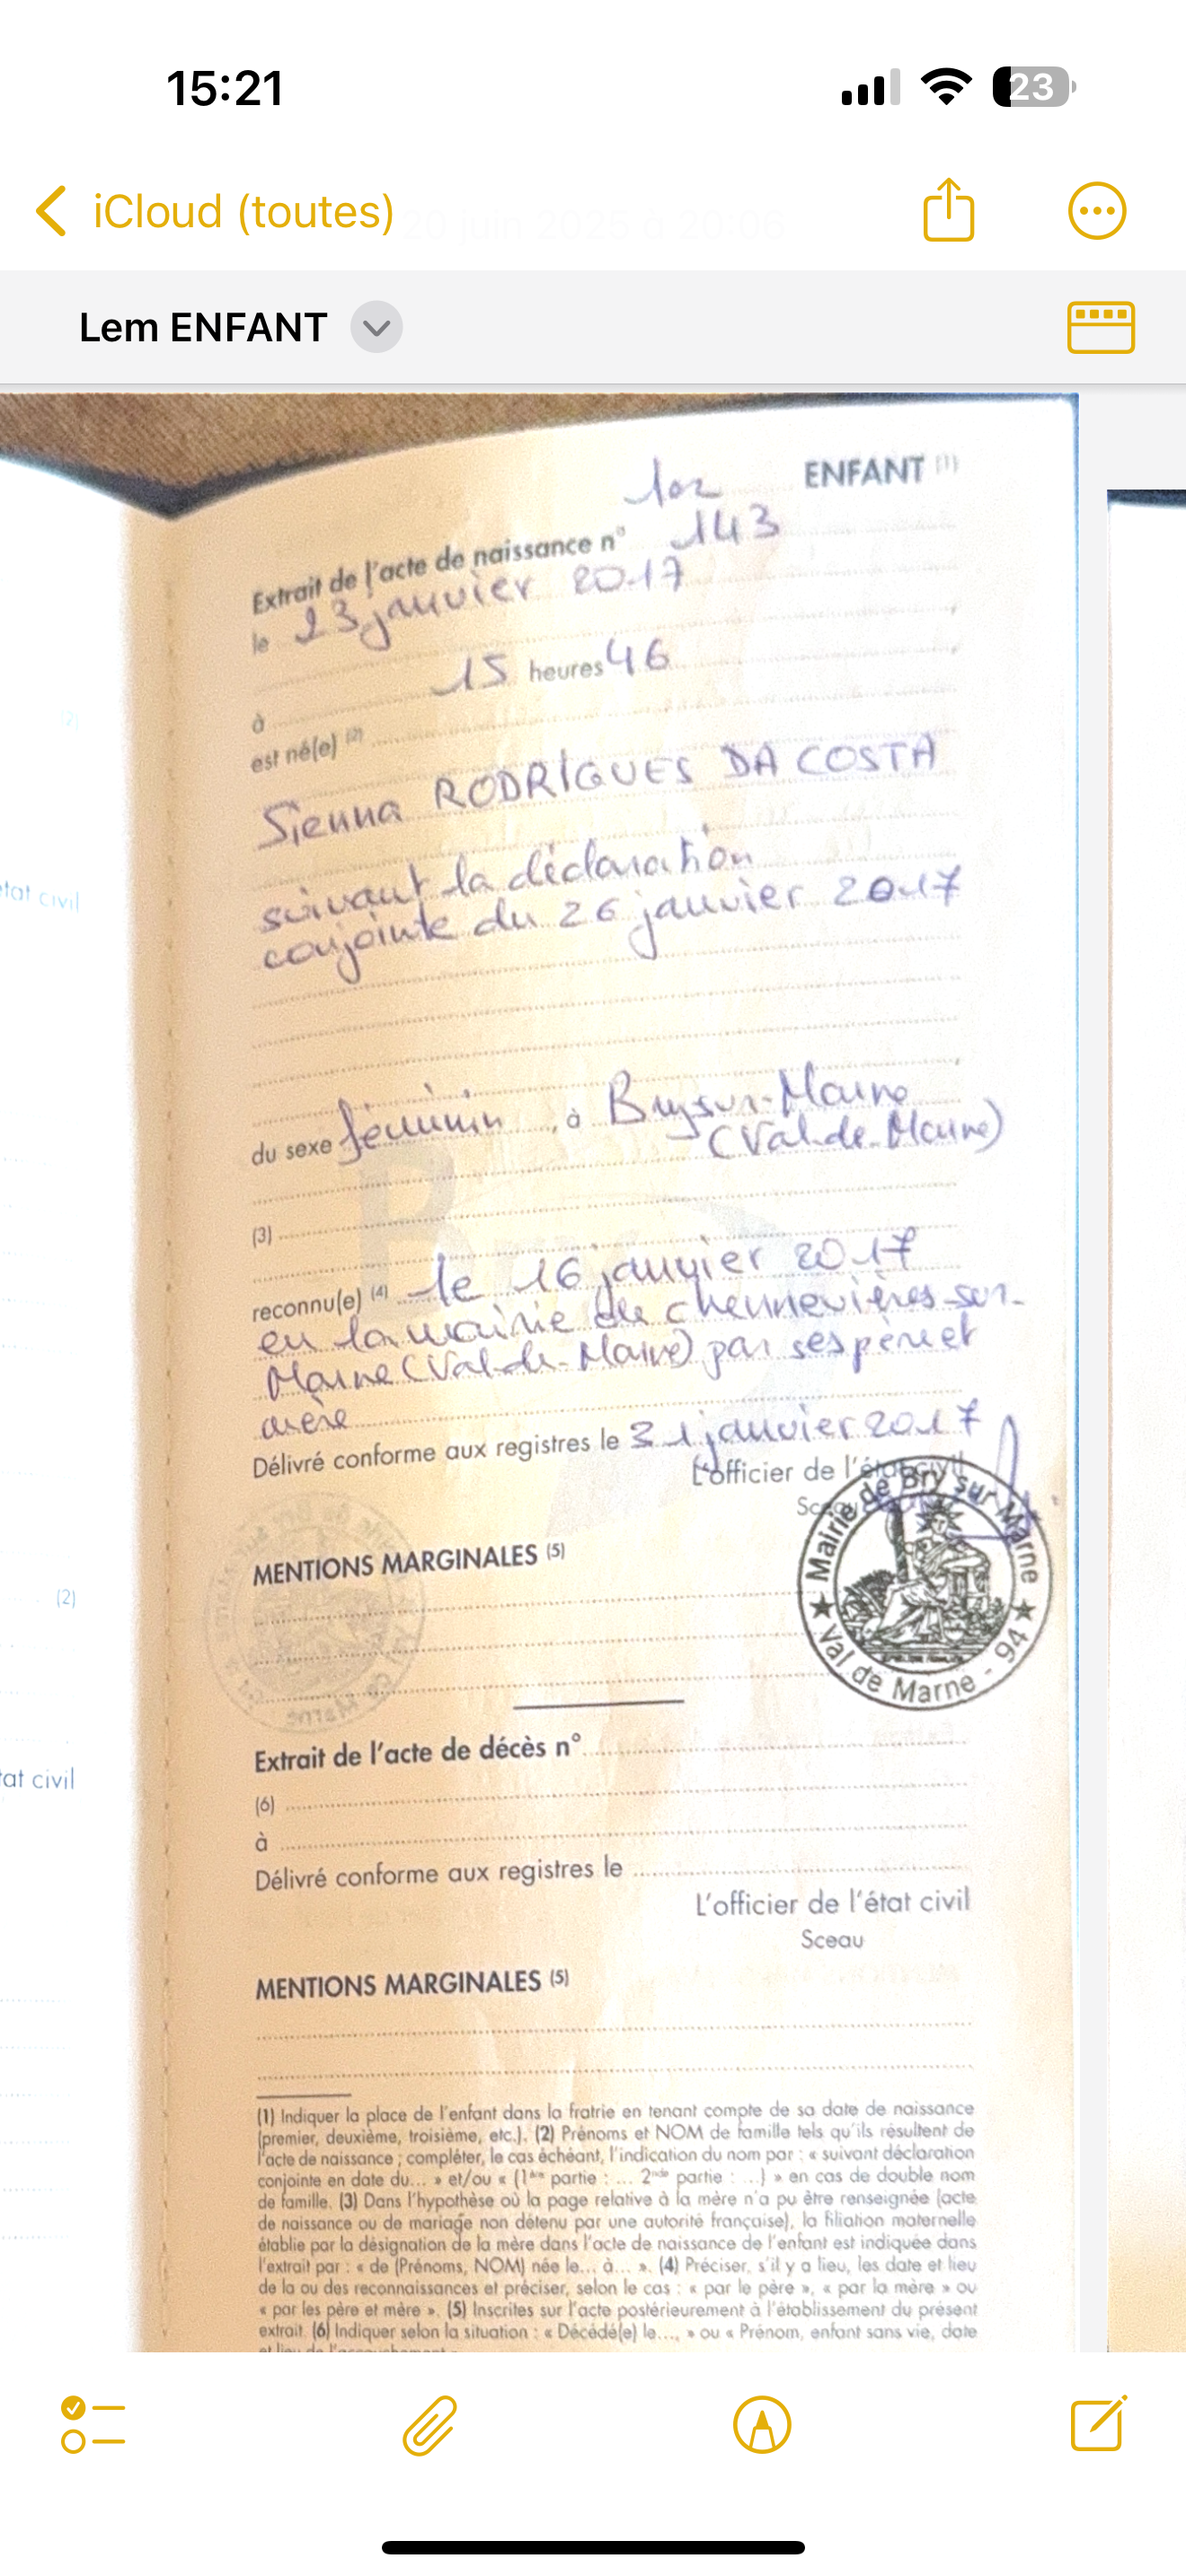 15:21
23
iCloud (toutes)
20 juin 2025 à 20:06
Lem ENFANT
ENFANT (1)
Extrait de l'acte de naissance n° 143
le 23 janvier 2017
à 15 heures 46
est né(e) (2)
Sienna RODRIGUES DA COSTA
suivant la déclaration
conjointe du 26 janvier 2017
du sexe féminin, à Bry sur-Marne
(Val-de-Marne)
(3)
reconnu(e) (4) le 16 janvier 2017
en la mairie de Chennevières-sur-
Marne (Val-de-Marne) par ses père et
mère
Délivré conforme aux registres le 31 janvier 2017
L'officier de l'état civil
Sceau
Mairie de Bry sur Marne
Val de Marne - 94
MENTIONS MARGINALES (5)
Extrait de l'acte de décès n°
(6)
à
Délivré conforme aux registres le
L'officier de l'état civil
Sceau
MENTIONS MARGINALES (5)
(1) Indiquer la place de l'enfant dans la fratrie en tenant compte de sa date de naissance
(premier, deuxième, troisième, etc.). (2) Prénoms et NOM de famille tels qu'ils résultent de
l'acte de naissance ; compléter, le cas échéant, l'indication du nom par : « suivant déclaration
conjointe en date du... » et/ou « (1ère partie : ... 2nde partie : ...) » en cas de double nom
de famille. (3) Dans l'hypothèse où la page relative à la mère n'a pu être renseignée (acte
de naissance ou de mariage non détenu par une autorité française), la filiation maternelle
établie par la désignation de la mère dans l'acte de naissance de l'enfant est indiquée dans
l'extrait par : « de (Prénoms, NOM) née le... à... ». (4) Préciser, s'il y a lieu, les date et lieu
de la ou des reconnaissances et préciser, selon le cas : « par le père », « par la mère » ou
« par les père et mère ». (5) Inscrites sur l'acte postérieurement à l'établissement du présent
extrait. (6) Indiquer selon la situation : « Décédé(e) le..., » ou « Prénom, enfant sans vie, date
(2)
état civil
(2)
tat civil